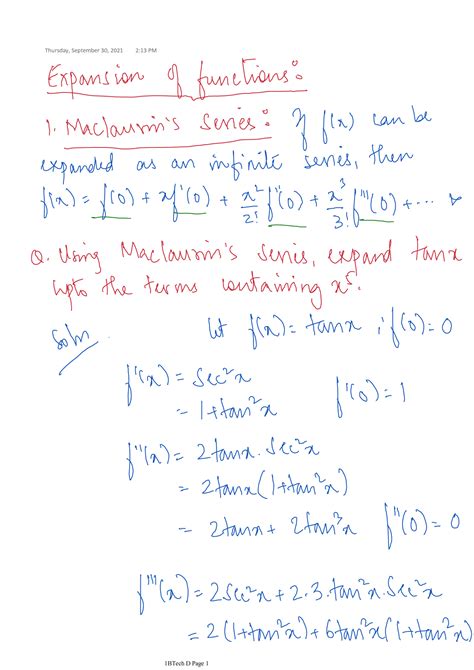 Thursday, September 30, 2021 2:13 PM
Expansion of functions:
1. Maclaurin's Series: If f(x) can be
expanded as an infinite series, then
f(x) = f(0) + xf'(0) + x²/2! f''(0) + x³/3! f'''(0) + ...
Q. Using Maclaurin's series, expand tanx
upto the terms containing x⁵.
Soln. let f(x) = tanx ; f(0) = 0
f'(x) = sec²x
= 1+tan²x f'(0) = 1
f''(x) = 2tanx. sec²x
= 2tanx(1+tan²x)
= 2tanx + 2tan³x f''(0) = 0
f'''(x) = 2sec²x + 2.3.tan²x.sec²x
= 2(1+tan²x)+6tan²x(1+tan²x
1BTech D Page 1